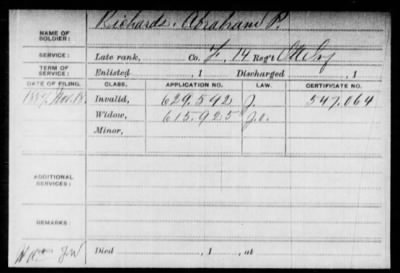 NAME OF SOLDIER: Richards, Abraham P.
SERVICE: Late rank, Co. F, 14 Reg't
TERM OF SERVICE: Enlisted , 1 Discharged , 1
DATE OF FILING. CLASS. APPLICATION NO. LAW. CERTIFICATE NO.
Nov. 18. Invalid, 629.592 J. 547.064
Widow, 615.925 J.o.
Minor,
ADDITIONAL SERVICES:
REMARKS:
Died , 1 , at